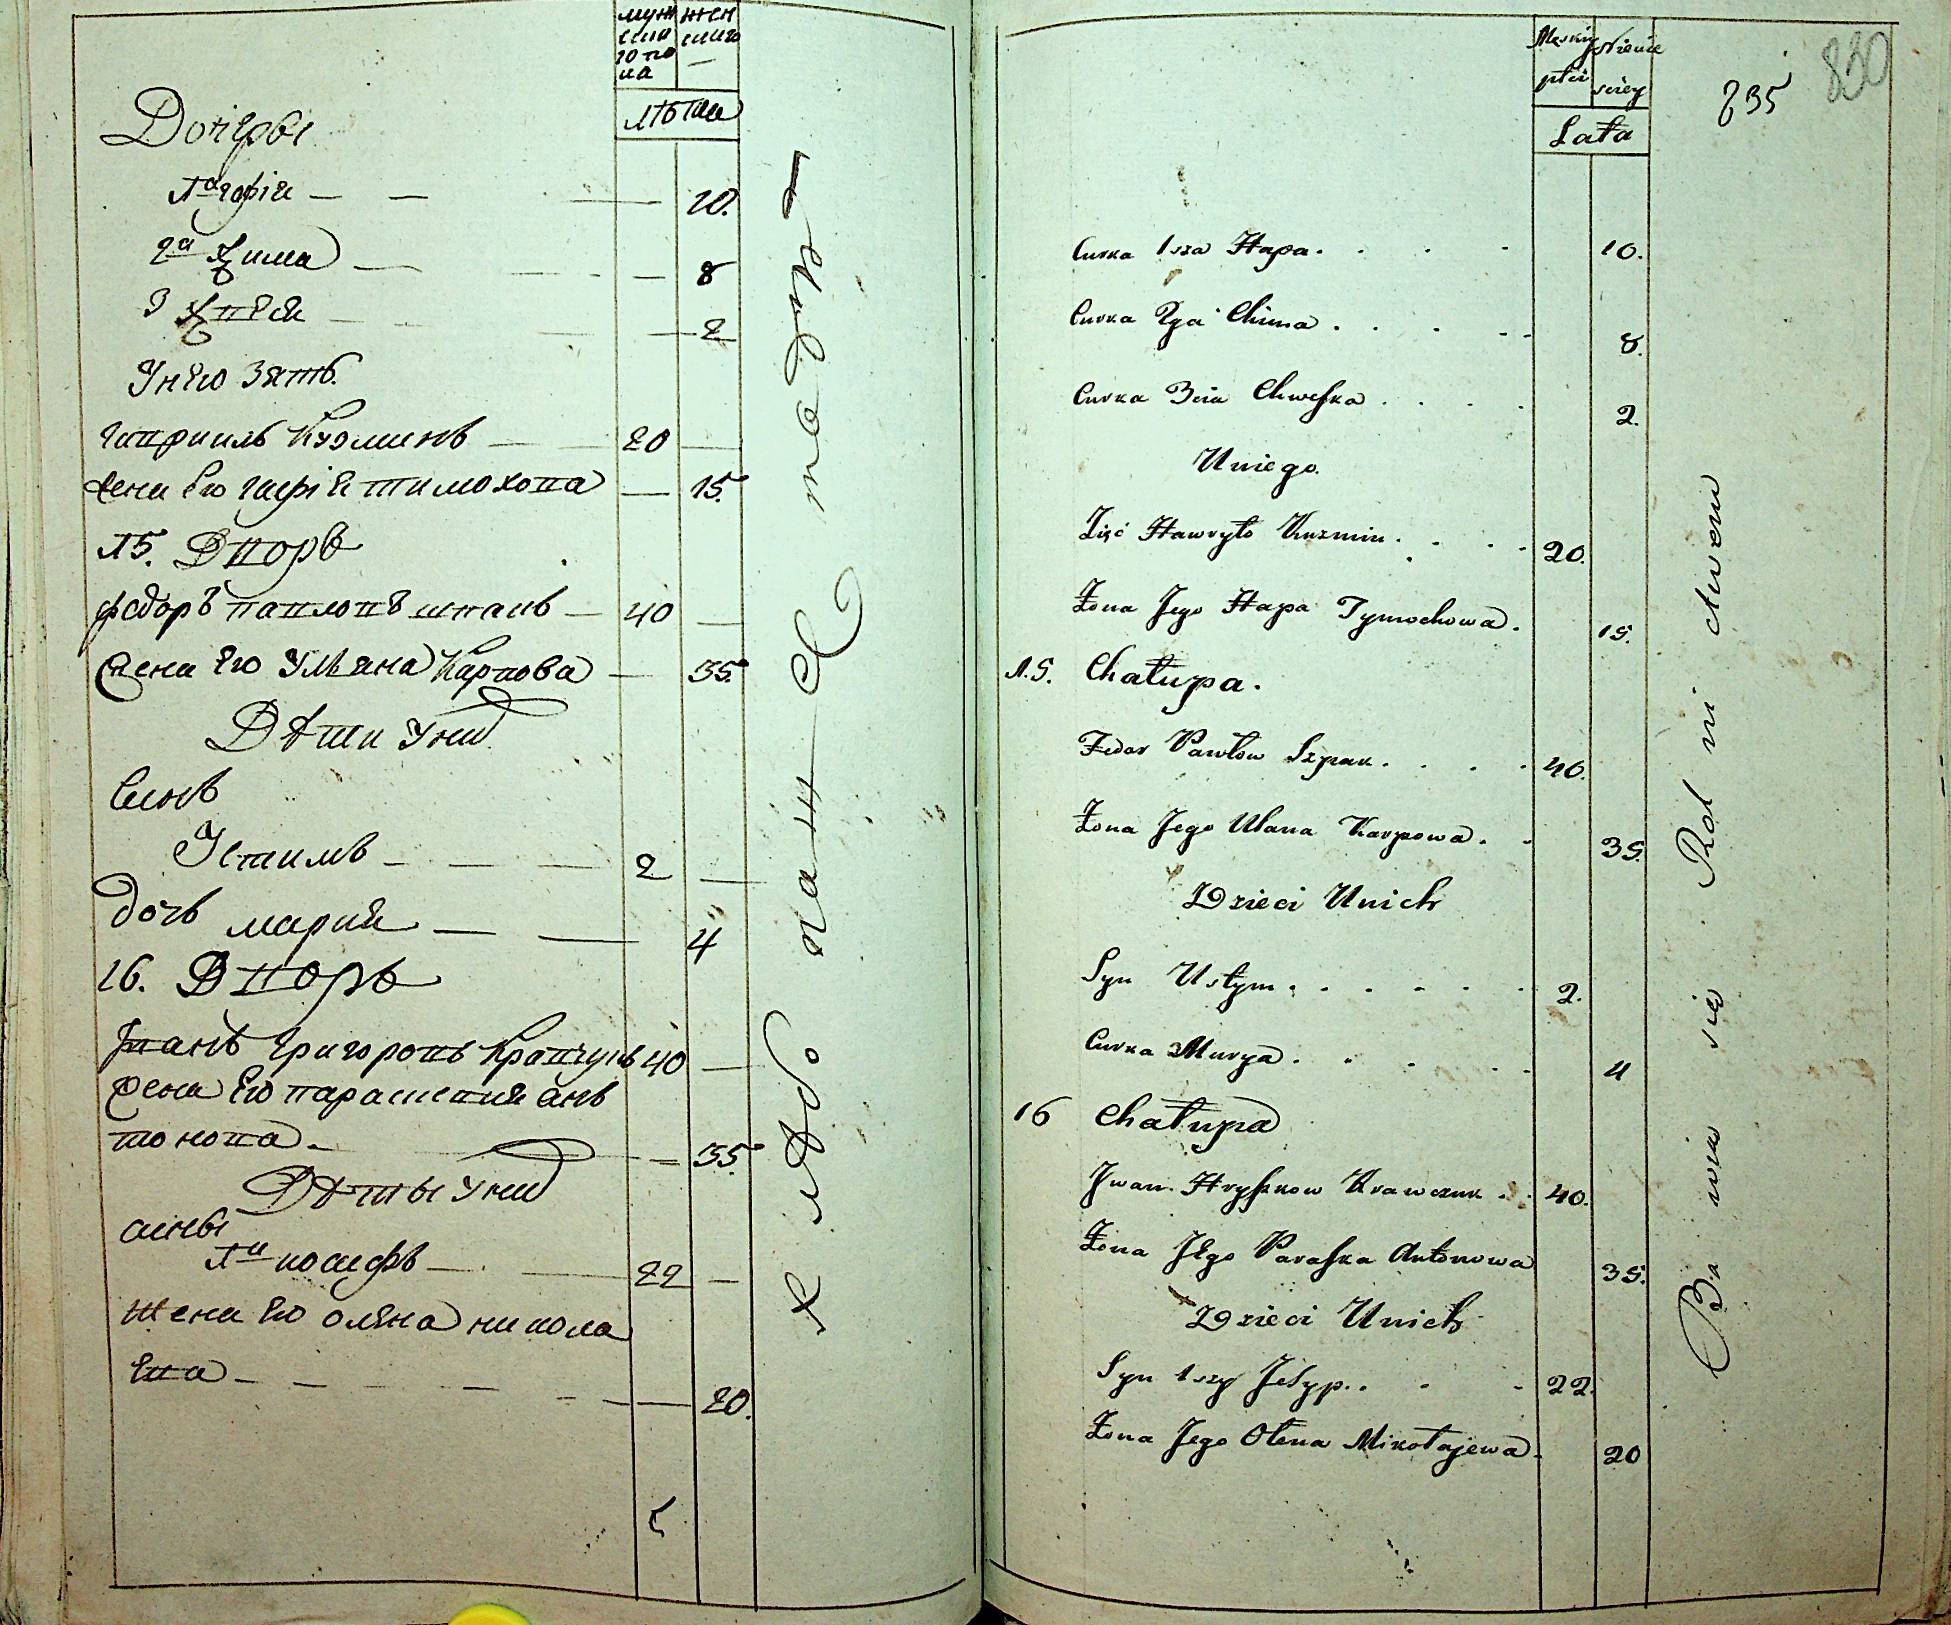 муж жен
ска скаго
го по
ла
лѣта
Дочеры
1ª гафія 10.
2ª Хима 8
3 Хвеся 2
У него Зять
гаврииль Кузминъ 20
жена Его гафія тимохова 15.
15. Дворъ
федоръ павловъ шпакъ 40
жена Его Уляна Карпова 35.
Дѣти У них
Сынъ
Устимъ 2
дочь мария 4
16. Дворъ
Иванъ григоровъ Кравчукъ 40
жена Его параскевия ан
тонова 35
Дѣты У них
сыны
1й иосифъ 22
жена Его олена никола
ева 20.
хлѣбопашествомъ
Męskiey Niewie
płci sciey
Lata
835
830
Curka 1sza Hapa 10.
Curka 2ga Chima 8.
Curka 3cia Chweska 2.
U niego
Zięć Hawryło Kuzmin 20.
Żona Jego Hapa Tymochowa 15.
15. Chałupa.
Fedor Pawłow Szpak 40.
Żona Jego Ulana Karpowa 35.
Dzieci U nich
Syn Ustym 2.
Curka Marya 4
16 Chałupa
Jwan Hryszkow Krawczuk 40.
Żona Jego Paraska Antonowa 35.
Dzieci U nich
Syn 1szy Josyp 22.
Żona Jego Ołena Mikołajewa 20
Bawia się Rolnictwem